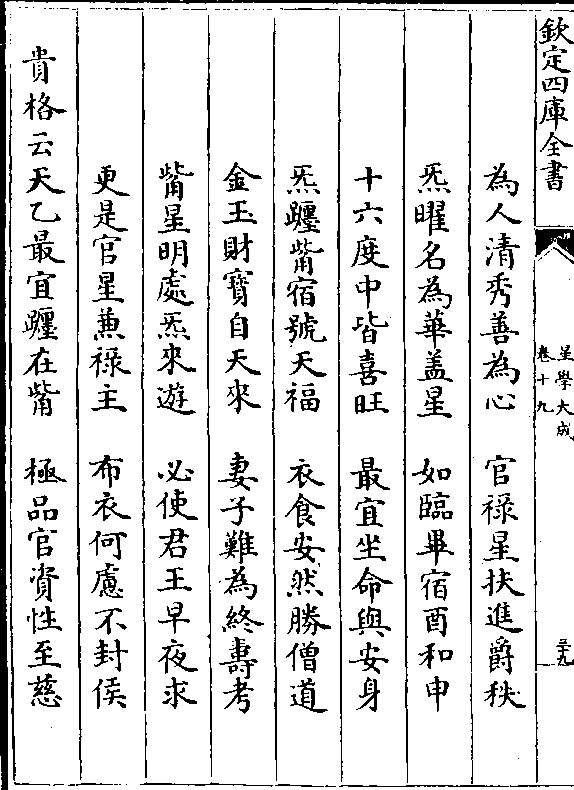 欽定四庫全書
星學大成
卷十九
三九
為人清秀善為心　官禄星扶進爵秩
炁曜名為華盖星　如臨畢宿酉和申
十六度中皆喜旺　最宜坐命與安身
炁躔觜宿號天福　衣食安然勝僧道
金玉財寳自天來　妻子難為終壽考
觜星明處炁來遊　必使君王早夜求
更是官星兼禄主　布衣何慮不封侯
貴格云天乙最宜躔在觜　極品官資性至慈